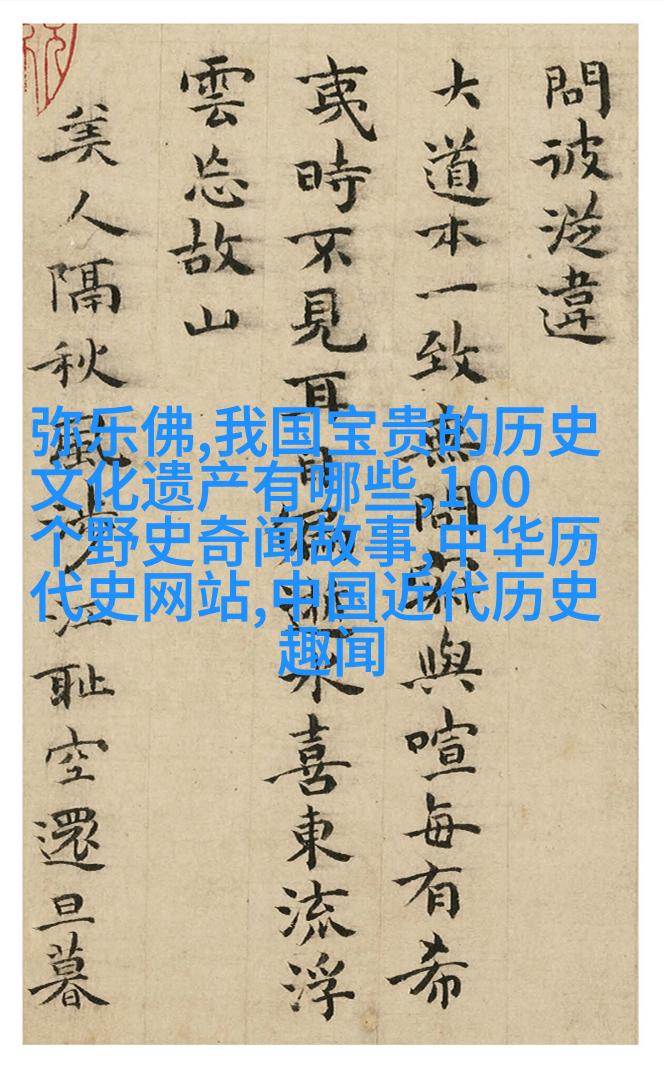 問彼從違
大道本一致無問與喧每有希
夷時不見耳水喜東流浮
雲忘故山
美人隔秋風涉江耻空還旦暮
弥乐佛,我国宝贵的历史
文化遗产有哪些,100
个野史奇闻故事,中华历
代史网站,中国近代历史
趣闻